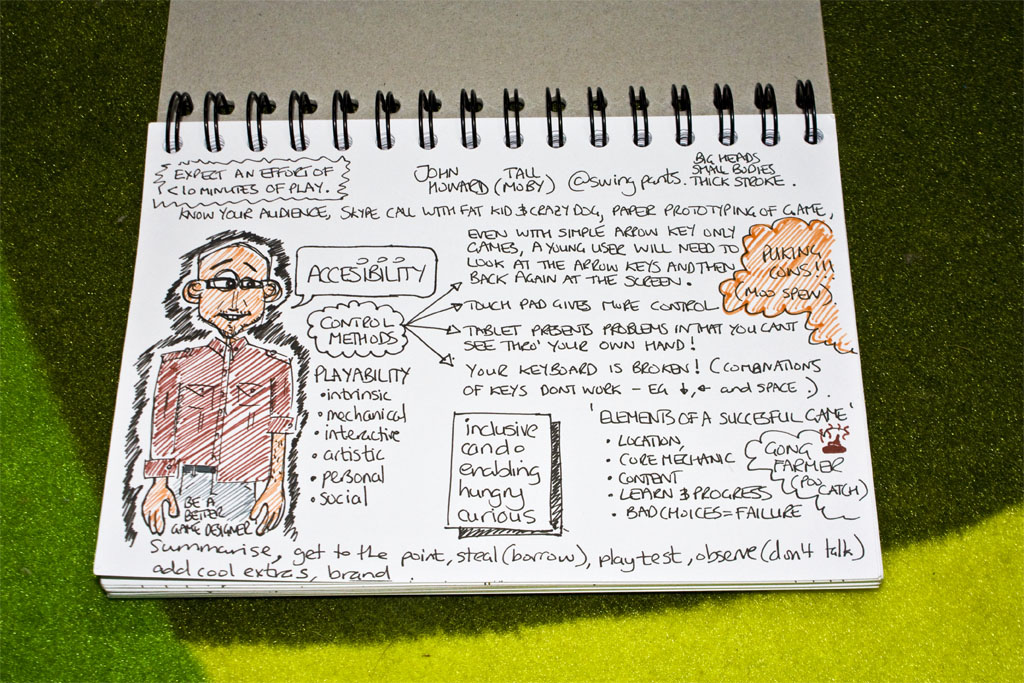 EXPECT AN EFFORT OF
< 10 MINUTES OF PLAY.
JOHN TALL
HOWARD (MOBY) @swingpants.
BIG HEADS
SMALL BODIES
THICK STROKE.
KNOW YOUR AUDIENCE, SKYPE CALL WITH FAT KID & CRAZY DOG, PAPER PROTOTYPING OF GAME,
ACCESIBILITY
CONTROL
METHODS
EVEN WITH SIMPLE ARROW KEY ONLY
GAMES, A YOUNG USER WILL NEED TO
LOOK AT THE ARROW KEYS AND THEN
BACK AGAIN AT THE SCREEN.
TOUCH PAD GIVES MORE CONTROL
TABLET PRESENTS PROBLEMS IN THAT YOU CANT
SEE THRO' YOUR OWN HAND!
YOUR KEYBOARD IS BROKEN! (COMBINATIONS
OF KEYS DONT WORK - EG ↓, ← and SPACE).
PUKING
COWS!!!
(MOO SPEW)
PLAYABILITY
• intrinsic
• mechanical
• interactive
• artistic
• personal
• social
inclusive
can do
enabling
hungry
curious
'ELEMENTS OF A SUCCESFUL GAME'
• LOCATION
• CORE MECHANIC
• CONTENT
• LEARN & PROGRESS
• BAD CHOICES = FAILURE
GONG
FARMER
(POO
CATCH)
BE A
BETTER
GAME DESIGNER
Summarise, get to the point, steal (borrow), playtest, observe (don't talk)
add cool extras, brand.